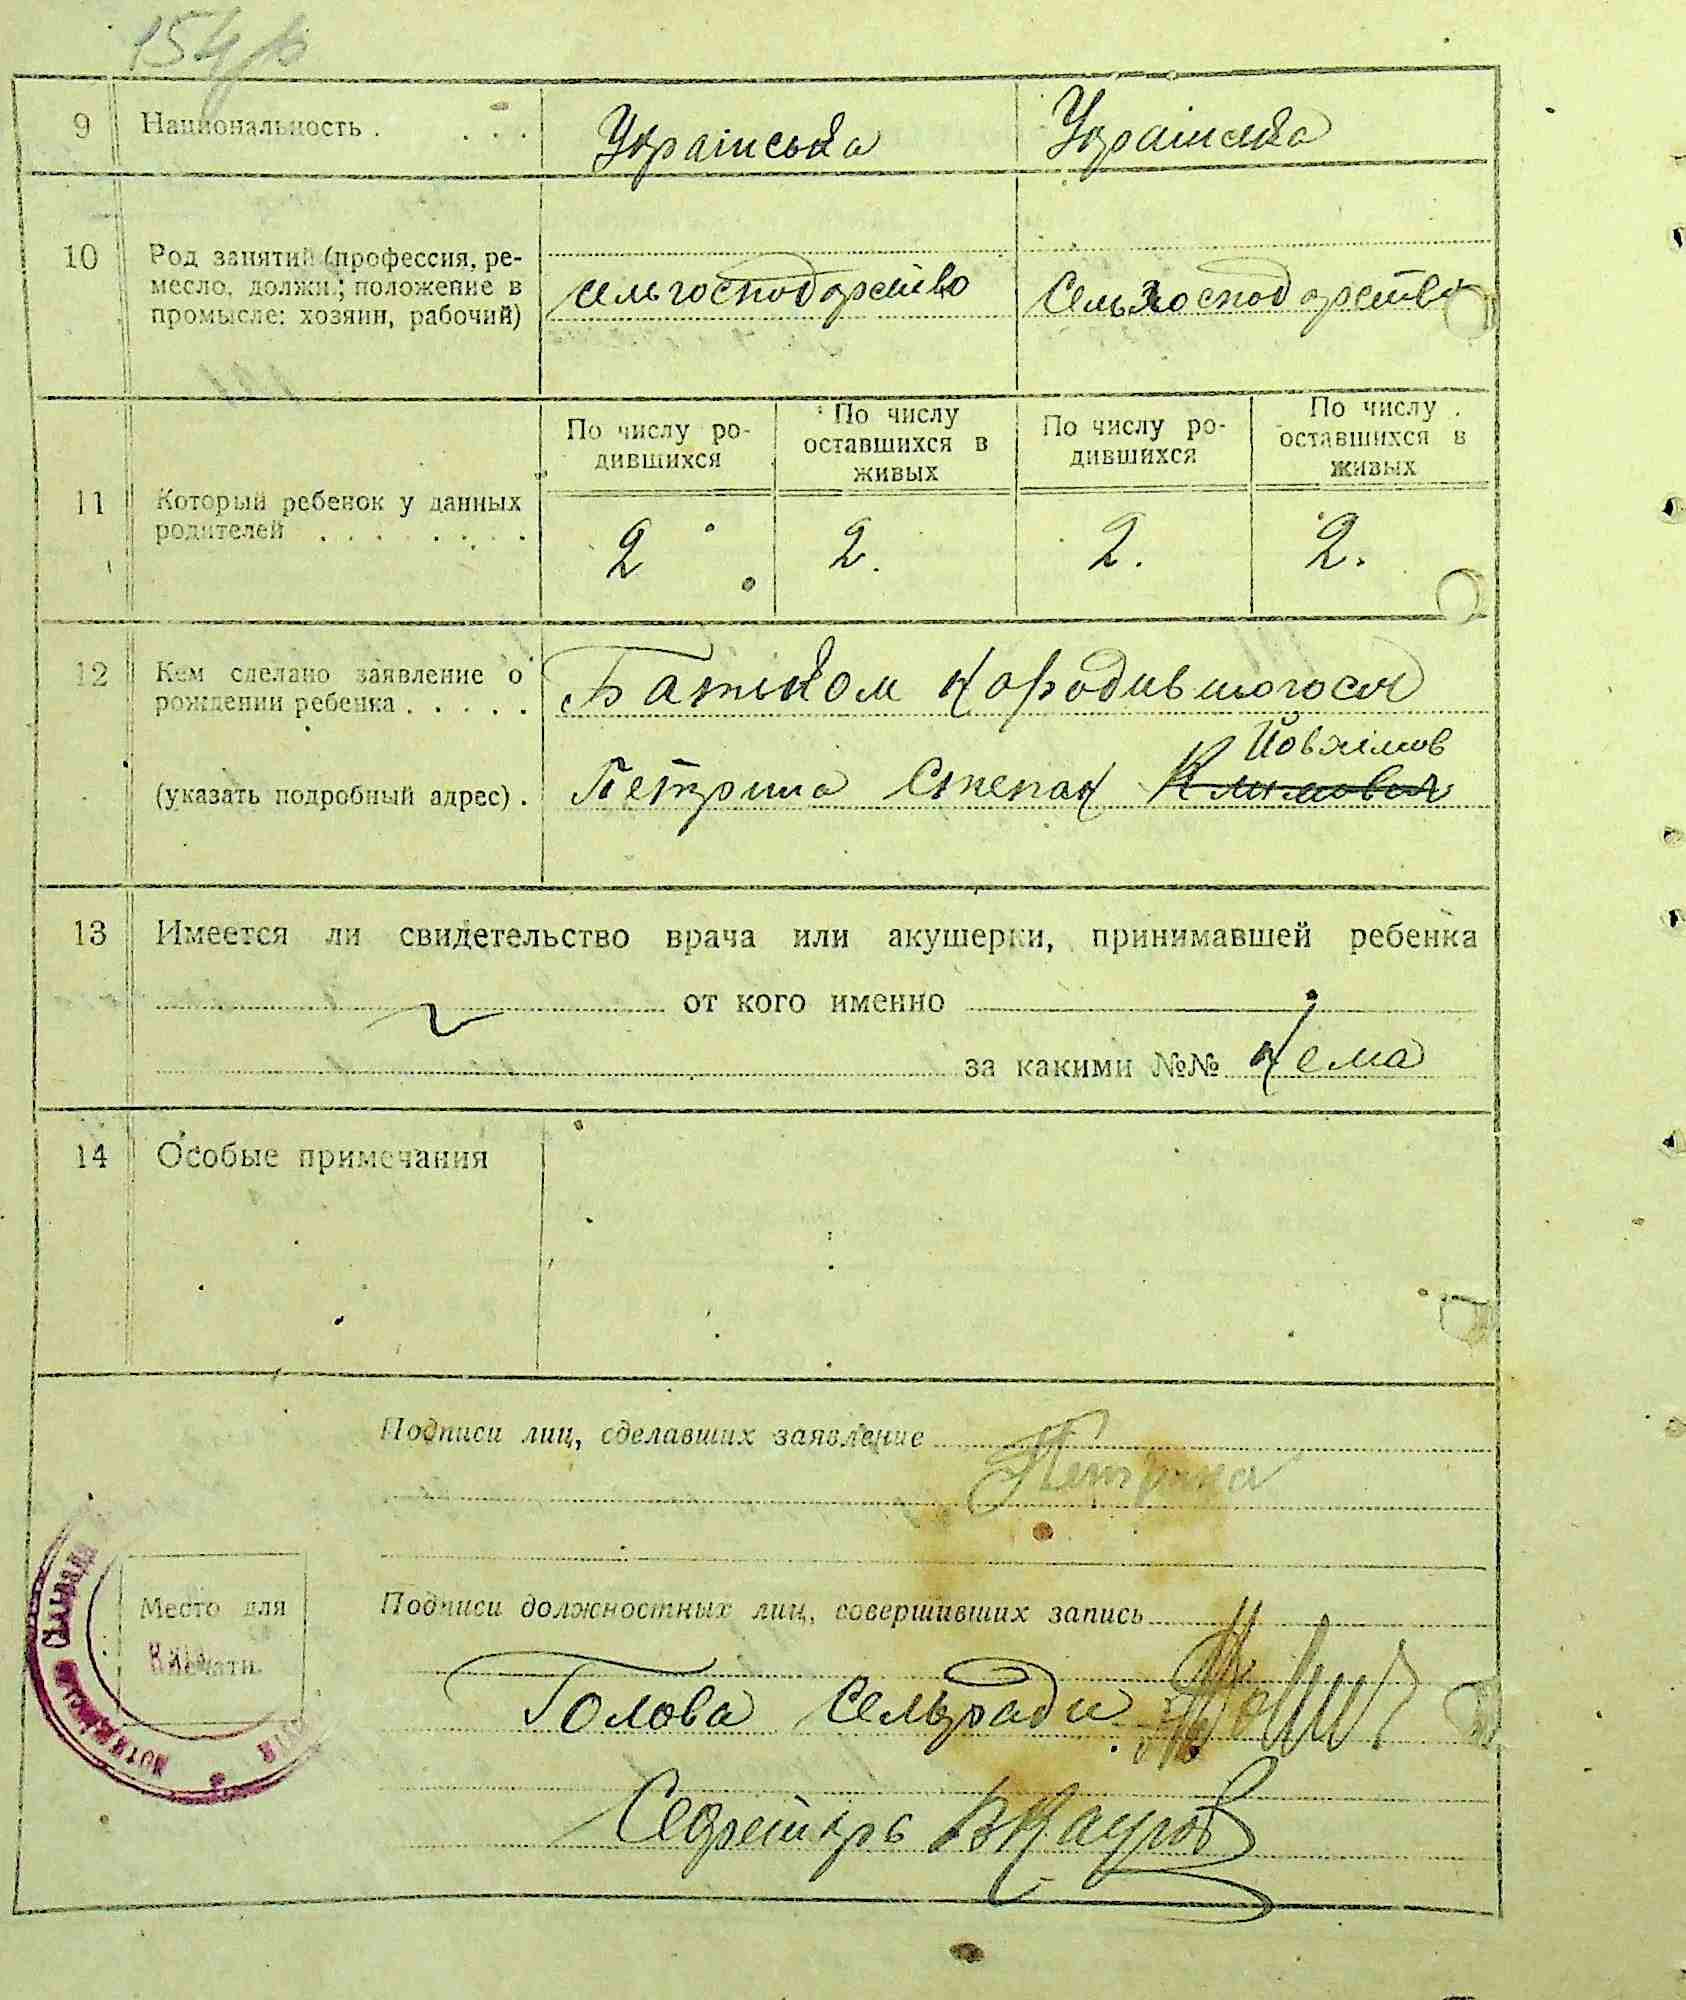 9 Национальность . . . . Украінська Украінська
10 Род занятий (профессия, ре-
месло, должн.; положение в
промысле: хозяин, рабочий)
сельгосподарство Сельгосподарство
По числу ро-
дившихся
По числу
оставшихся в
живых
По числу ро-
дившихся
По числу
оставшихся в
живых
11 Который ребенок у данных
родителей . . . . . . . .
2 2. 2. 2.
12 Кем сделано заявление о
рождении ребенка . . . . .
Батьком народившогося
Йовхімов
(указать подробный адрес) . Петрина Степан Климович
13 Имеется ли свидетельство врача или акушерки, принимавшей ребенка
от кого именно
за какими №№ Нема
14 Особые примечания
Подписи лиц, сделавших заявление
Петрина
Место для
печати.
Подписи должностных лиц, совершивших запись
Голова Сельради
Секретарь